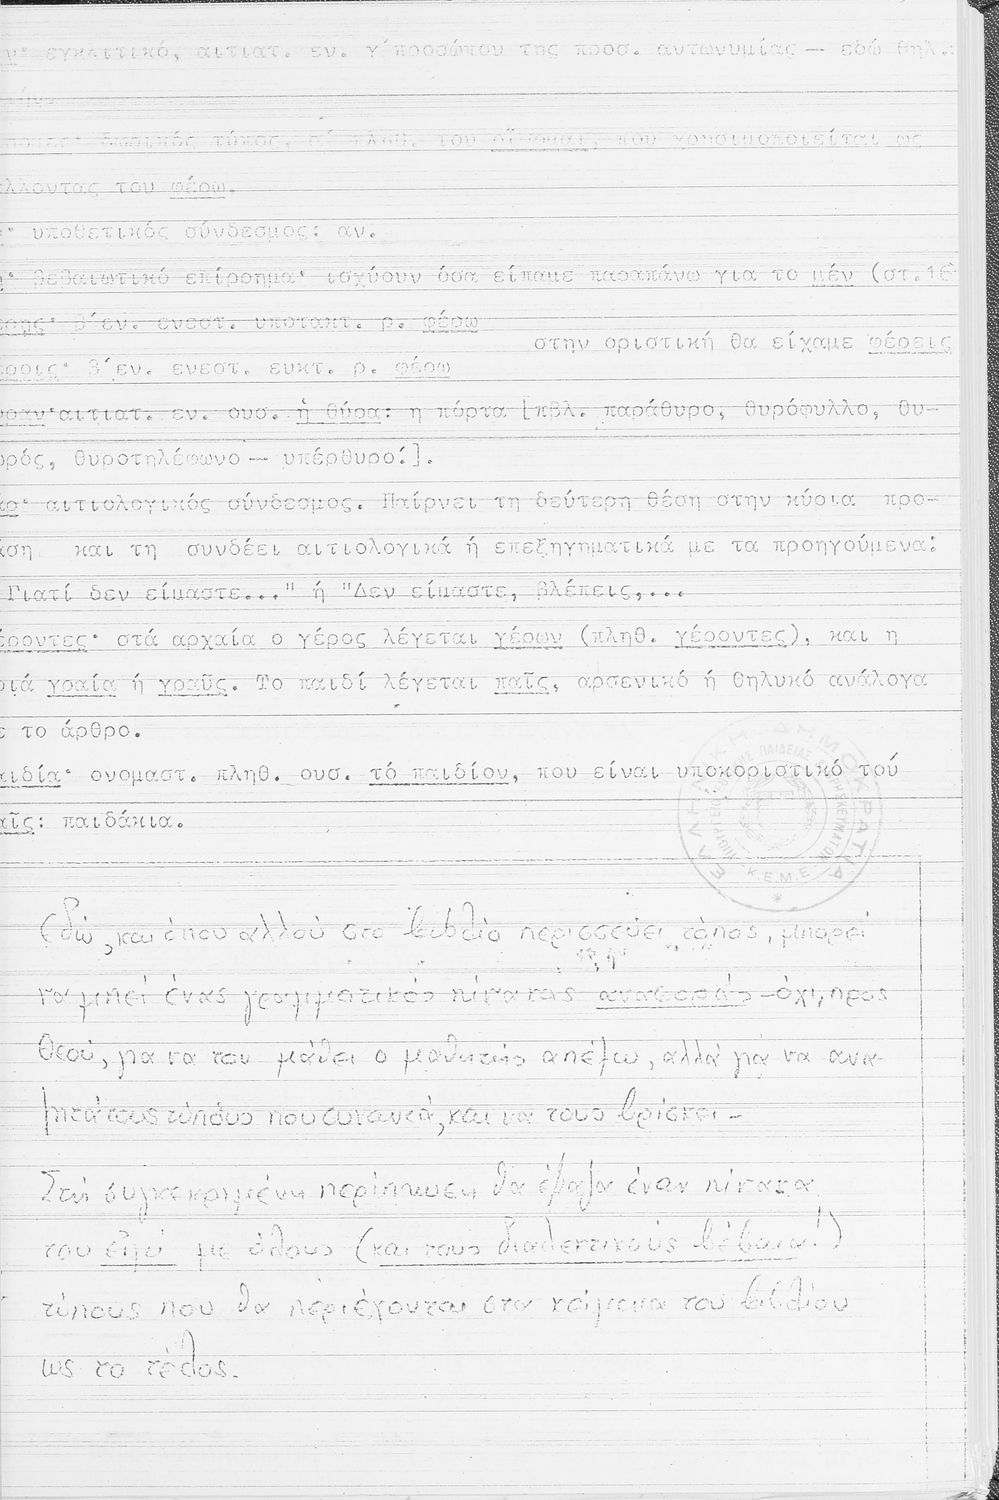 εγκλιτικό, αιτιατ. εν. γ΄προσώπου της προσ. αντωνυμίας — εδώ θηλ.:
τύπος, πληθ. του οἴσομαι, που χρησιμοποιείται ως
λλοντας του φέρω.
υποθετικός σύνδεσμος: αν.
βεβαιωτικό επίρρημα· ισχύουν όσα είπαμε παραπάνω για το μέν (στ.16
ρης· β΄εν. ενεστ. υποτακτ. ρ. φέρω
στην οριστική θα είχαμε φέρεις
ροις· β΄εν. ενεστ. ευκτ. ρ. φέρω
ραν·αιτιατ. εν. ουσ. ἡ θύρα: η πόρτα [πβλ. παράθυρο, θυρόφυλλο, θυ-
ρός, θυροτηλέφωνο — υπέρθυρο!].
ρ· αιτιολογικός σύνδεσμος. Παίρνει τη δεύτερη θέση στην κύρια προ-
αση και τη συνδέει αιτιολογικά ή επεξηγηματικά με τα προηγούμενα:
Γιατί δεν είμαστε..." ή "Δεν είμαστε, βλέπεις,...
έροντες· στά αρχαία ο γέρος λέγεται γέρων (πληθ. γέροντες), και η
ριά γραία ή γραῦς. Το παιδί λέγεται παῖς, αρσενικό ή θηλυκό ανάλογα
ε το άρθρο.
αιδία· ονομαστ. πληθ. ουσ. τό παιδίον, που είναι υποκοριστικό τού
αῖς: παιδάκια.
ΕΛΛΗΝΙΚΗ ΔΗΜΟΚΡΑΤΙΑ
ΠΑΙΔΕΙΑΣ ΘΡΗΣΚΕΥΜΑΤΩΝ
Κ.Ε.Μ.Ε.
Εδώ, και όπου αλλού στο βιβλίο περισσεύει τόπος, μπορεί
να μπεί ένας γραμματικός πίνακας αναφοράς — όχι, προς
Θεού, για να τον μάθει ο μαθητής απέξω, αλλά για να ανα-
ζητά τους τύπους που συναντά, και να τους βρίσκει —
Στη συγκεκριμένη περίπτωση θα έβαζα έναν πίνακα
του εἰμί με όλους (και τους διαλεκτικούς βέβαια!)
τύπους που θα περιέχονται στα κείμενα του βιβλίου
ως το τέλος.